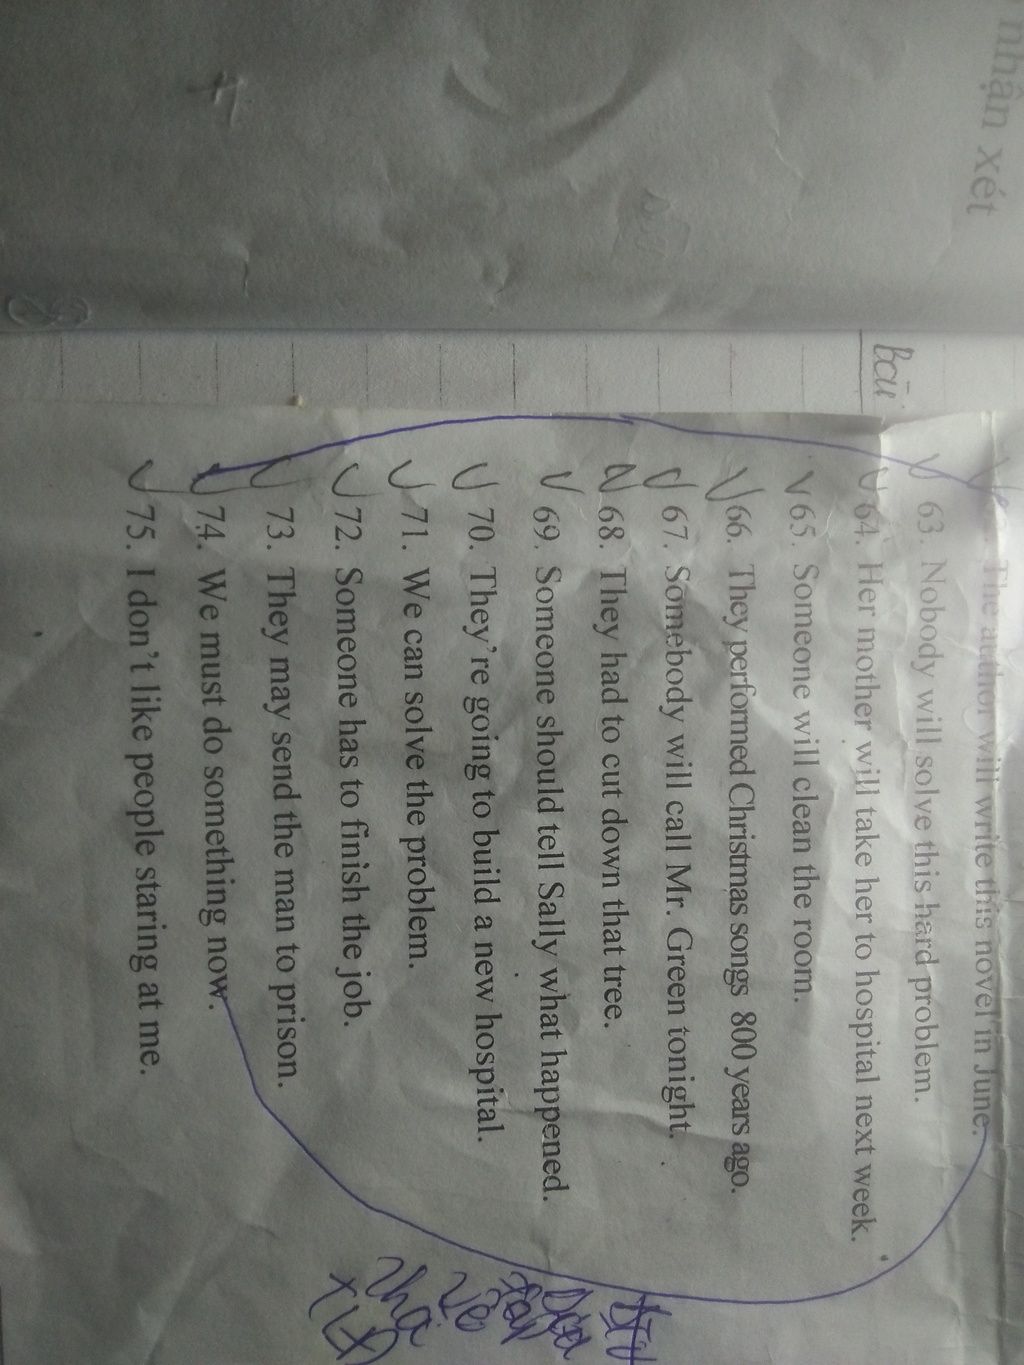 nhận xét
BCU
The author will write this novel in June.
63. Nobody will solve this hard problem.
64. Her mother will take her to hospital next week.
65. Someone will clean the room.
66. They performed Christmas songs 800 years ago.
67. Somebody will call Mr. Green tonight.
68. They had to cut down that tree.
69. Someone should tell Sally what happened.
70. They're going to build a new hospital.
71. We can solve the problem.
72. Someone has to finish the job.
73. They may send the man to prison.
74. We must do something now.
75. I don't like people staring at me.
Về
nhà